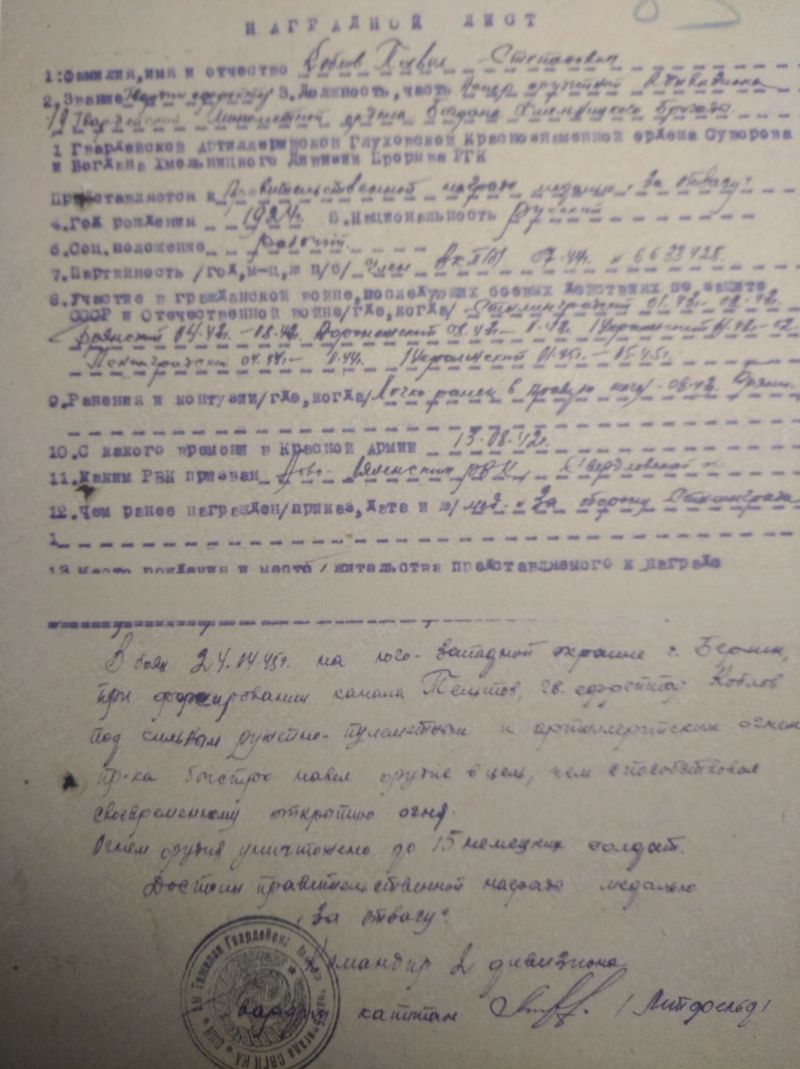 НАГРАДНОЙ ЛИСТ
1. Фамилия, имя и отчество Степанович
2. Звание 3. Должность, часть дивизиона
Гвардейской ордена Богдана Хмельницкого бригады
1 Гвардейской Артиллерийской Глуховской Краснознаменной ордена Суворова
и Богдана Хмельницкого Дивизии Прорыва РГК
Представляется к Правительственной награде медали "За отвагу"
4. Год рождения 1924г. 5. Национальность Русский
6. Соц. положение Рабочий
7. Партийность /год, м-ц, № п/б/ Член ВКП(б) 07.44г. № 6633428
8. Участие в гражданской войне, последующих боевых действиях по защите
СССР и Отечественной войне/где, когда/ Сталинградский
04.42г. - 08.42 Воронежский 08.42г. - 1 Украинский
Ленинградский 1 Украинский 01.45г. - 05.45г.
9. Ранения и контузии/где, когда/ Легко ранен в правую ногу 08.42
10. С какого времени в Красной Армии 13.08.42г.
11. Каким РВК призван Ново-Лялинским РВК Свердловской
12. Чем ранее награжден/приказ, дата и №/ мед. "За оборону Сталинграда
1
13 Место рождения и место жительства представляемого к награде
В боях 24.04.45г. на юго-западной окраине г. Берлин,
при форсировании канала Тельтов, гв. ефрейтор Коблов
под сильным ружейно-пулеметным и артиллерийским огнем
пр-ка быстро навел орудие в цель, чем способствовал
своевременному открытию огня.
Огнем орудия уничтожено до 15 немецких солдат.
Достоин правительственной награды медалью
"За отвагу".
Командир 2 дивизиона
гвардии капитан